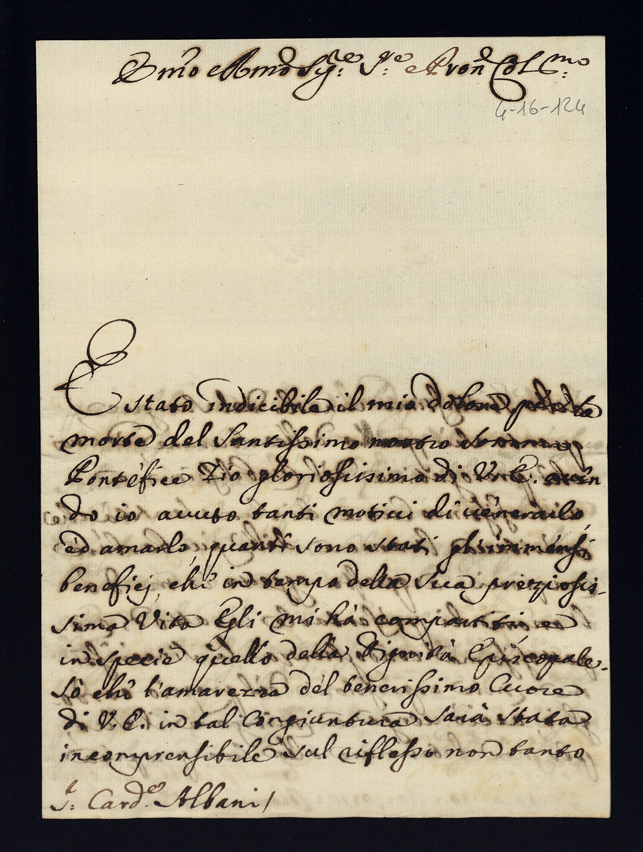 Em̃o e Rm̃o Sig.re S.re e Pron̄ Col.mo
4-16-124
E stato indicibile il mio dolore p la
morte del Santissimo nostro Sommo
Pontefice Zio gloriosissimo di V. E. aven
do io avuto tanti motivi di venerarlo
ed amarlo, quanti sono stati gl'immensi
beneficj, che in tempo della sua preziosis-
sima Vita Egli m'hà compartiti e
in specie quello della Dignità Episcopale.
Sò che l'amarezza del tenerissimo Cuore
di V. E. in tal Congiuntura sarà stata
incomprensibile sul riflesso non tanto
S.r Card.e Albani/